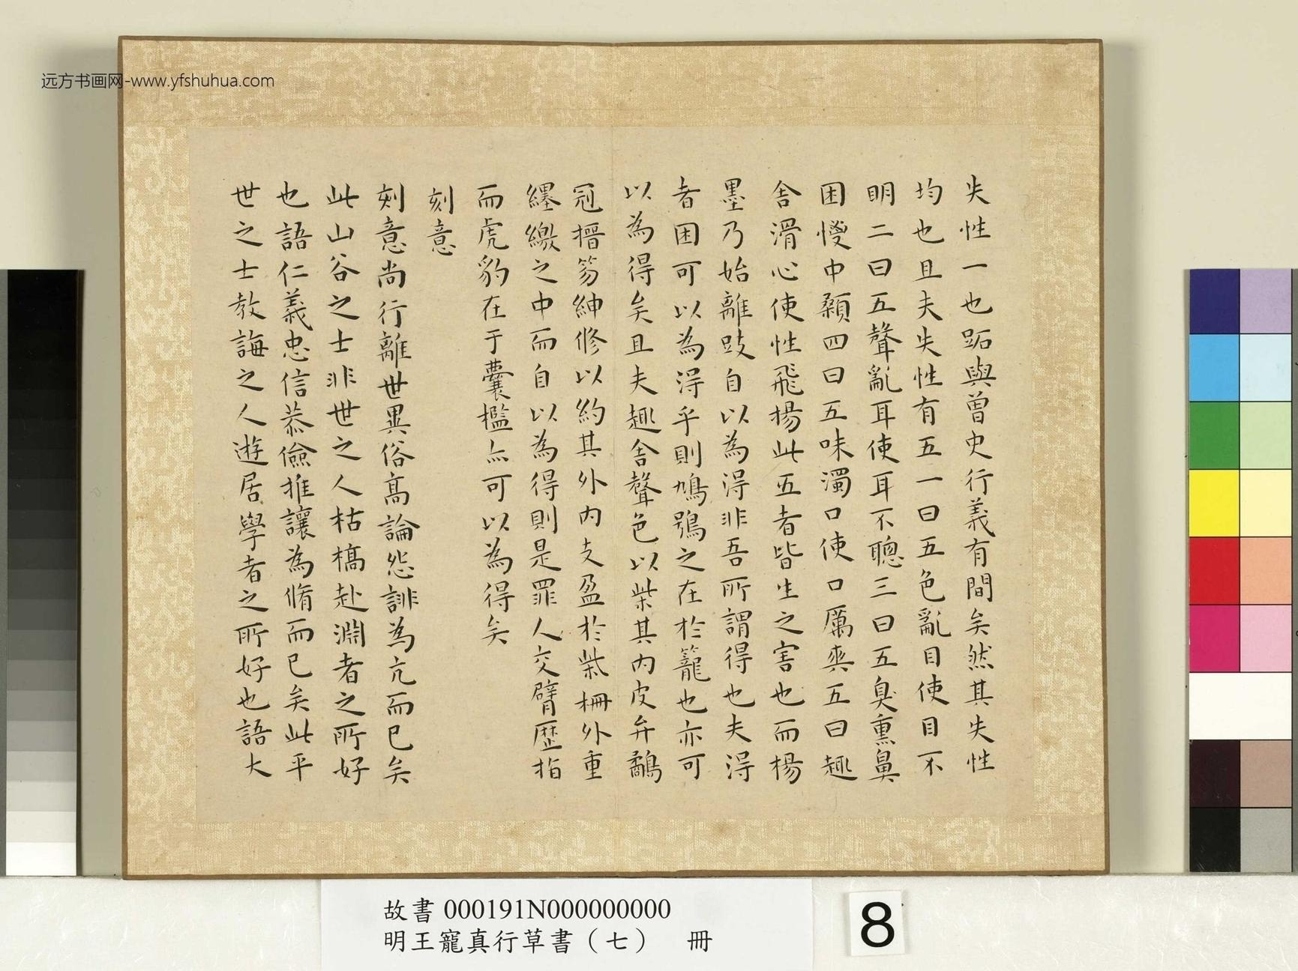 远方书画网-www.yfshuhua.com
失性一也跖與曾史行義有間矣然其失性
均也且夫失性有五一曰五色亂目使目不
明二曰五聲亂耳使耳不聰三曰五臭熏鼻
困慢中顙四曰五味濁口使口厲爽五曰趣
舍滑心使性飛揚此五者皆生之害也而楊
墨乃始離跂自以為得非吾所謂得也夫得
者困可以為得乎則鳩鴞之在於籠也亦可
以為得矣且夫趣舍聲色以柴其內皮弁鷸
冠搢笏紳修以約其外內支盈於柴柵外重
纆繳之中而自以為得則是罪人交臂歷指
而虎豹在于囊檻亦可以為得矣
刻意
刻意尚行離世異俗高論怨誹為亢而已矣
此山谷之士非世之人枯槁赴淵者之所好
也語仁義忠信恭儉推讓為脩而已矣此平
世之士教誨之人遊居學者之所好也語大
故書000191N000000000
明王寵真行草書（七） 冊
8